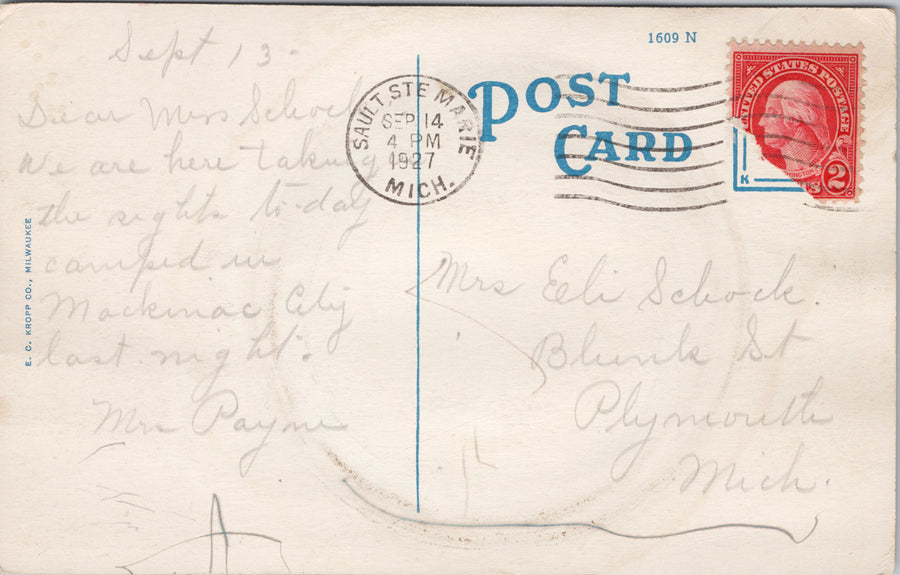 Sept 13 -
Dear Mrs Schock
We are here taking
the sights to-day
camped in
Mackinac City
last night.
Mrs Payne
E. C. KROPP CO., MILWAUKEE
1609 N
POST
CARD
SAULT STE MARIE
SEP 14
4 PM
1927
MICH.
UNITED STATES POSTAGE
2
K
Mrs Eli Schock.
Blunk St
Plymouth
Mich.